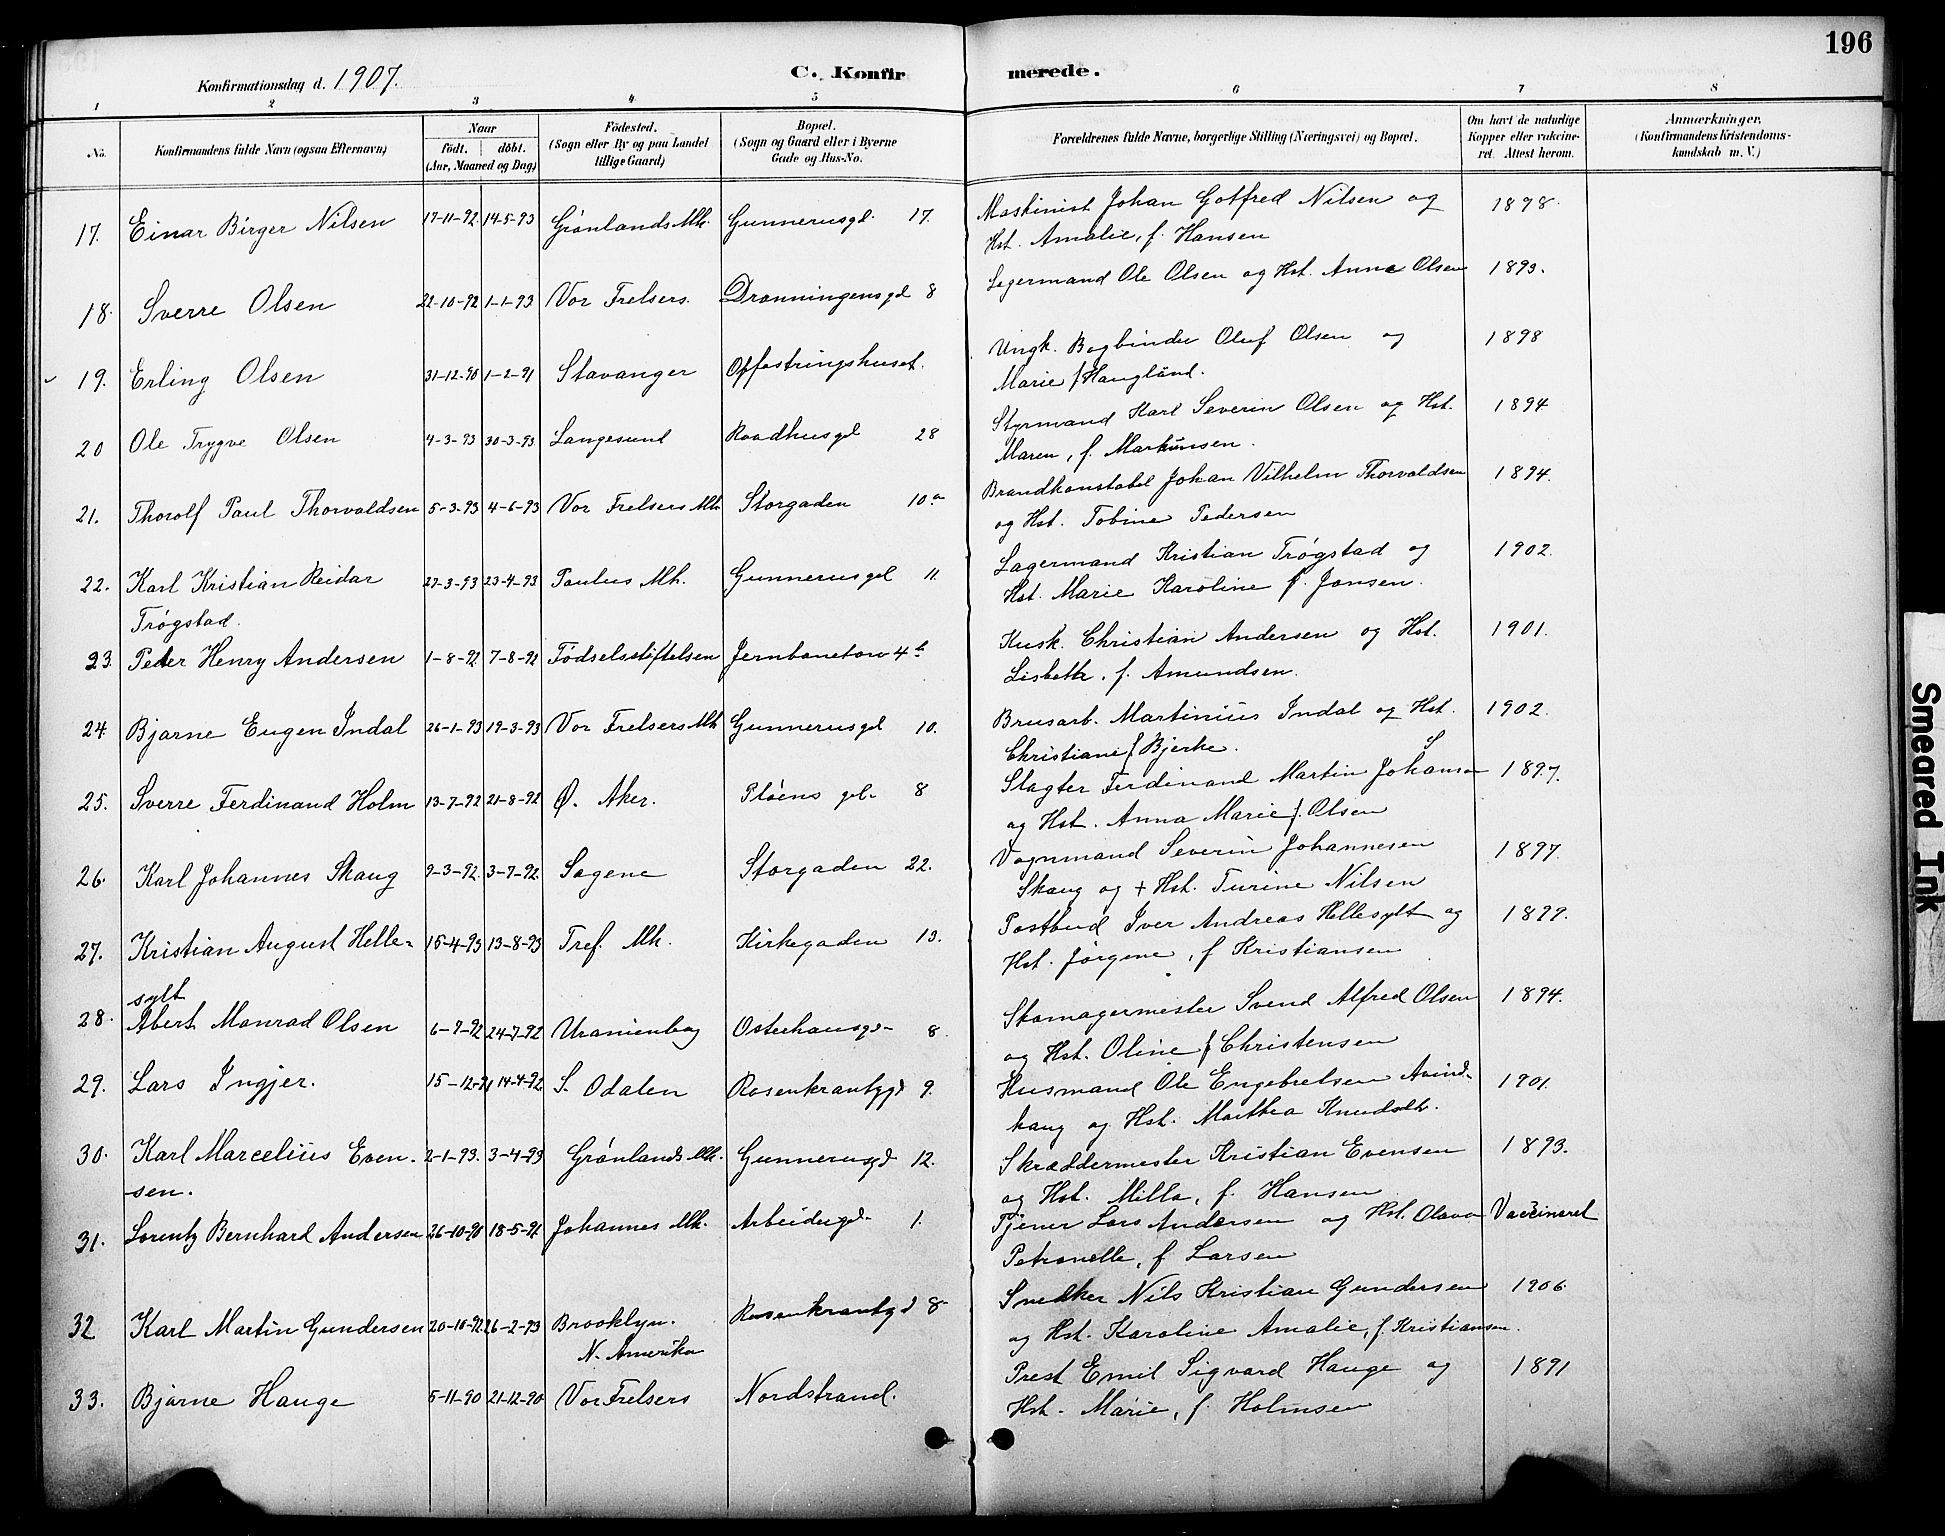 196
Konfirmationsdag d. 1907.
C. Konfirmerede.
1 2 3 4 5 6 7 8
No.
Konfirmandens fulde Navn (ogsaa Efternavn)
Naar
født. døbt.
(Aar, Maaned og Dag)
Fødested.
(Sogn eller By og paa Landet
tillige Gaard)
Bopæl.
(Sogn og Gaard eller i Byerne
Gade og Hus-No.
Forældrenes fulde Navne, borgerlige Stilling (Næringsvei) og Bopæl.
Om havt de naturlige
Kopper eller vakcine-
ret. Attest herom.
Anmærkninger.
(Konfirmandens Kristendoms-
kundskab m. V.)
17. Einar Birger Nilsen 17-11-92 14-5-93 Grønlands Mh. Gunnerusgd. 17. Maskinist Johan Gotfred Nilsen og 1898.
Hst. Amalie, f. Hansen
18. Sverre Olsen 22-10-92 1-1-93 Vor Frelsers. Dronningensgd 8 Legermand Ole Olsen og Hst. Anna Olsen 1893.
19. Erling Olsen 31-12-90 1-2-91 Stavanger Opfostringshuset. Ungk. Bogbinder Oluf Olsen og 1898
Marie f Haugland.
20 Ole Trygve Olsen 4-3-93 30-3-93 Langesund Raadhusgd 28 Styrmand Karl Severin Olsen og Hst. 1894
Maren, f. Markussen.
21. Thorolf Paul Thorvaldsen 5-3-93 4-6-93 Vor Frelsers Mh Storgaden 10a Brandkonstabel Johan Vilhelm Thorvaldsen 1894.
og Hst. Tobine Pedersen
22. Karl Kristian Reidar 27-3-93 23-4-93 Paulus Mh. Gunnerusgd 11. Lagermand Kristian Trøgstad og 1902.
Trøgstad. Hst. Marie Karoline f. Jansen.
23. Peder Henry Andersen 1-8-92 7-8-92 Fødselsstiftelsen Jernbanetorv 4b Kusk. Christian Andersen og Hst. 1901.
Lisbeth. f. Amundsen.
24. Bjarne Eugen Indal 26-1-93 19-3-93 Vor Frelsers Mh Gunnerusgd 10. Brusarb. Martinius Indal og Hst. 1902.
Christiane f Bjerke.
25. Sverre Ferdinand Holm 13-7-92 21-8-92 Ø. Aker. Pløens gd. 8 Slagter Ferdinand Martin Johansen 1897.
og Hst. Anna Marie f. Olsen
26. Karl Johannes Skaug 9-3-92. 3-7-92 Sagene Storgaden 22. Vognmand Severin Johannesen 1897.
Skaug og + Hst. Turine Nilsen
27. Kristian August Helle- 15-4-93 13-8-93 Tref. Mh. Kirkegaden 13. Postbud Iver Andreas Hellesylt og 1899.
sylt Hst. Jørgene, f Kristiansen
28. Abert Monrad Olsen 6-7-92 24-7-92 Uranienborg Osterhausgd- 8. Skomagermester Svend Alfred Olsen 1894.
og Hst. Oline f Christensen
29. Lars Ingjer. 15-12-91 14-4-92 S. Odalen Rosenkrantzgd 9. Husmand Ole Engebretsen 1901.
og Hst. Marthea
30. Karl Marcelius Even- 2-1-93. 3-4-93 Grønlands Mh. Gunnerusgd 12. Skræddermester Kristian Evensen 1893.
sen. og Hst. Milla, f. Hansen
31. Lorentz Bernhard Andersen 26-10-90 18-5-91 Johannes Mh. Arbeidergd- 1. Tjener Lars Andersen og Hst. Olava Vaccineret
Petronelle, f Larsen
32 Karl Martin Gundersen 20-10-92 26-2-93 Brooklyn. Rosenkrantzgd 8- Snedker Nils Kristian Gundersen 1906.
N. Amerika og Hst. Karoline Amalie, f. Kristiansen.
33. Bjarne Hauge 5-11-90 21-12-90 Vor Frelsers Nordstrand. Prest Emil Sigvard Hauge og 1891
Hst. Marie, f. Holmsen
Smeared Ink